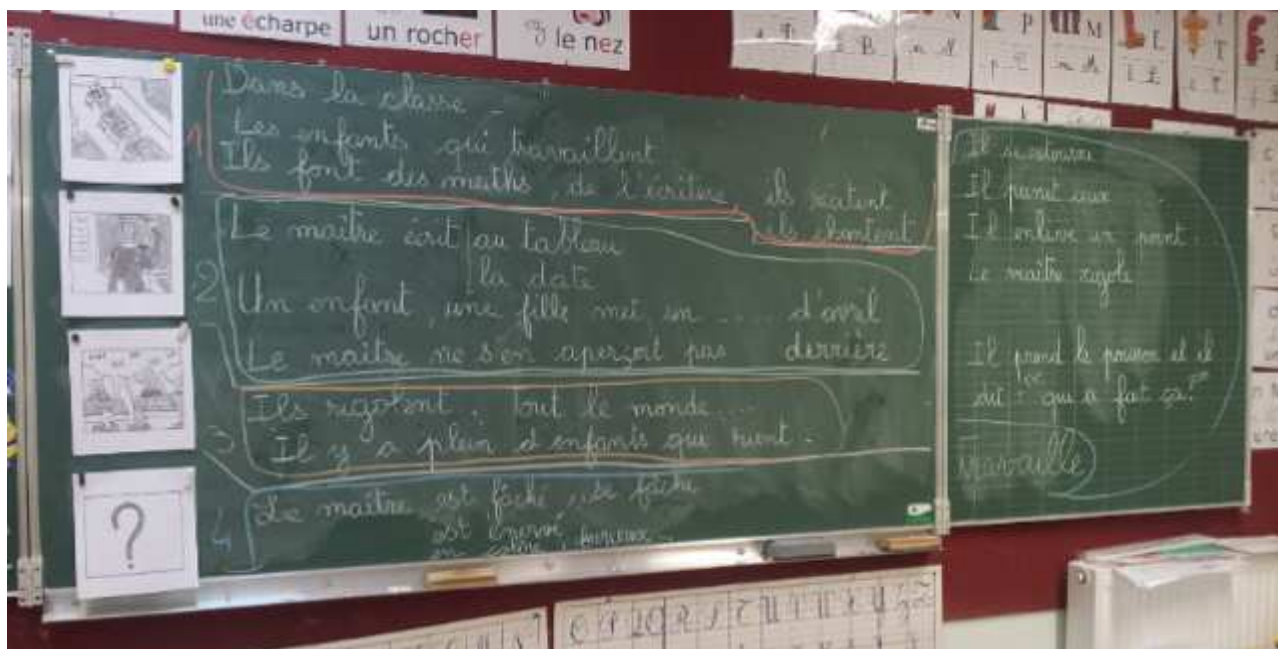 une écharpe
un rocher
le nez
B
P
M
L
T
1
Dans la classe
Les enfants qui travaillent
Ils font des maths, de l'écriture, ils
ils chantent
2
Le maître écrit au tableau
la date
Un enfant, une fille met un .... d'avril
Le maître ne s'en aperçoit pas derrière
3
Ils rigolent. Tout le monde...
Il y a plein d'enfants qui rient.
4
?
Le maître est fâché, se fâche
est énervé
en colère, furieux
Il se retourne
Il
Il enlève un
Le maître rigole
Il prend le poisson et il
dit : "qui a fait ça?"
travaille